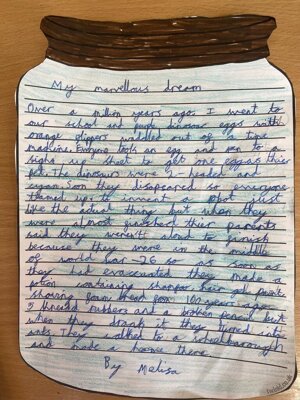 My marvellous dream
Over a million years ago I went to
our school and kept dinosaur eggs with
orange flippers walked out of a time
machine. Everyone took an egg and ran to a
signs up sheet to get one egg as thier
pet. The dinosaurs were 2-headed and
cyan. Soon they disapeared so everyone
teamed up to invent a robot just
like the actual thing but when they
were almost finished their parents
said they weren't alowd to finish
because they were in the middle
of world war 26 so as soon as
they had evaxcuated they made a
potion containing shampoo hair gel peanuts
shaving foam bread from 100 years ago
3 thread rubbers and a broken pencil but
when they drank it they turned into
ants. They walked to a
and made a house there.
By Melisa